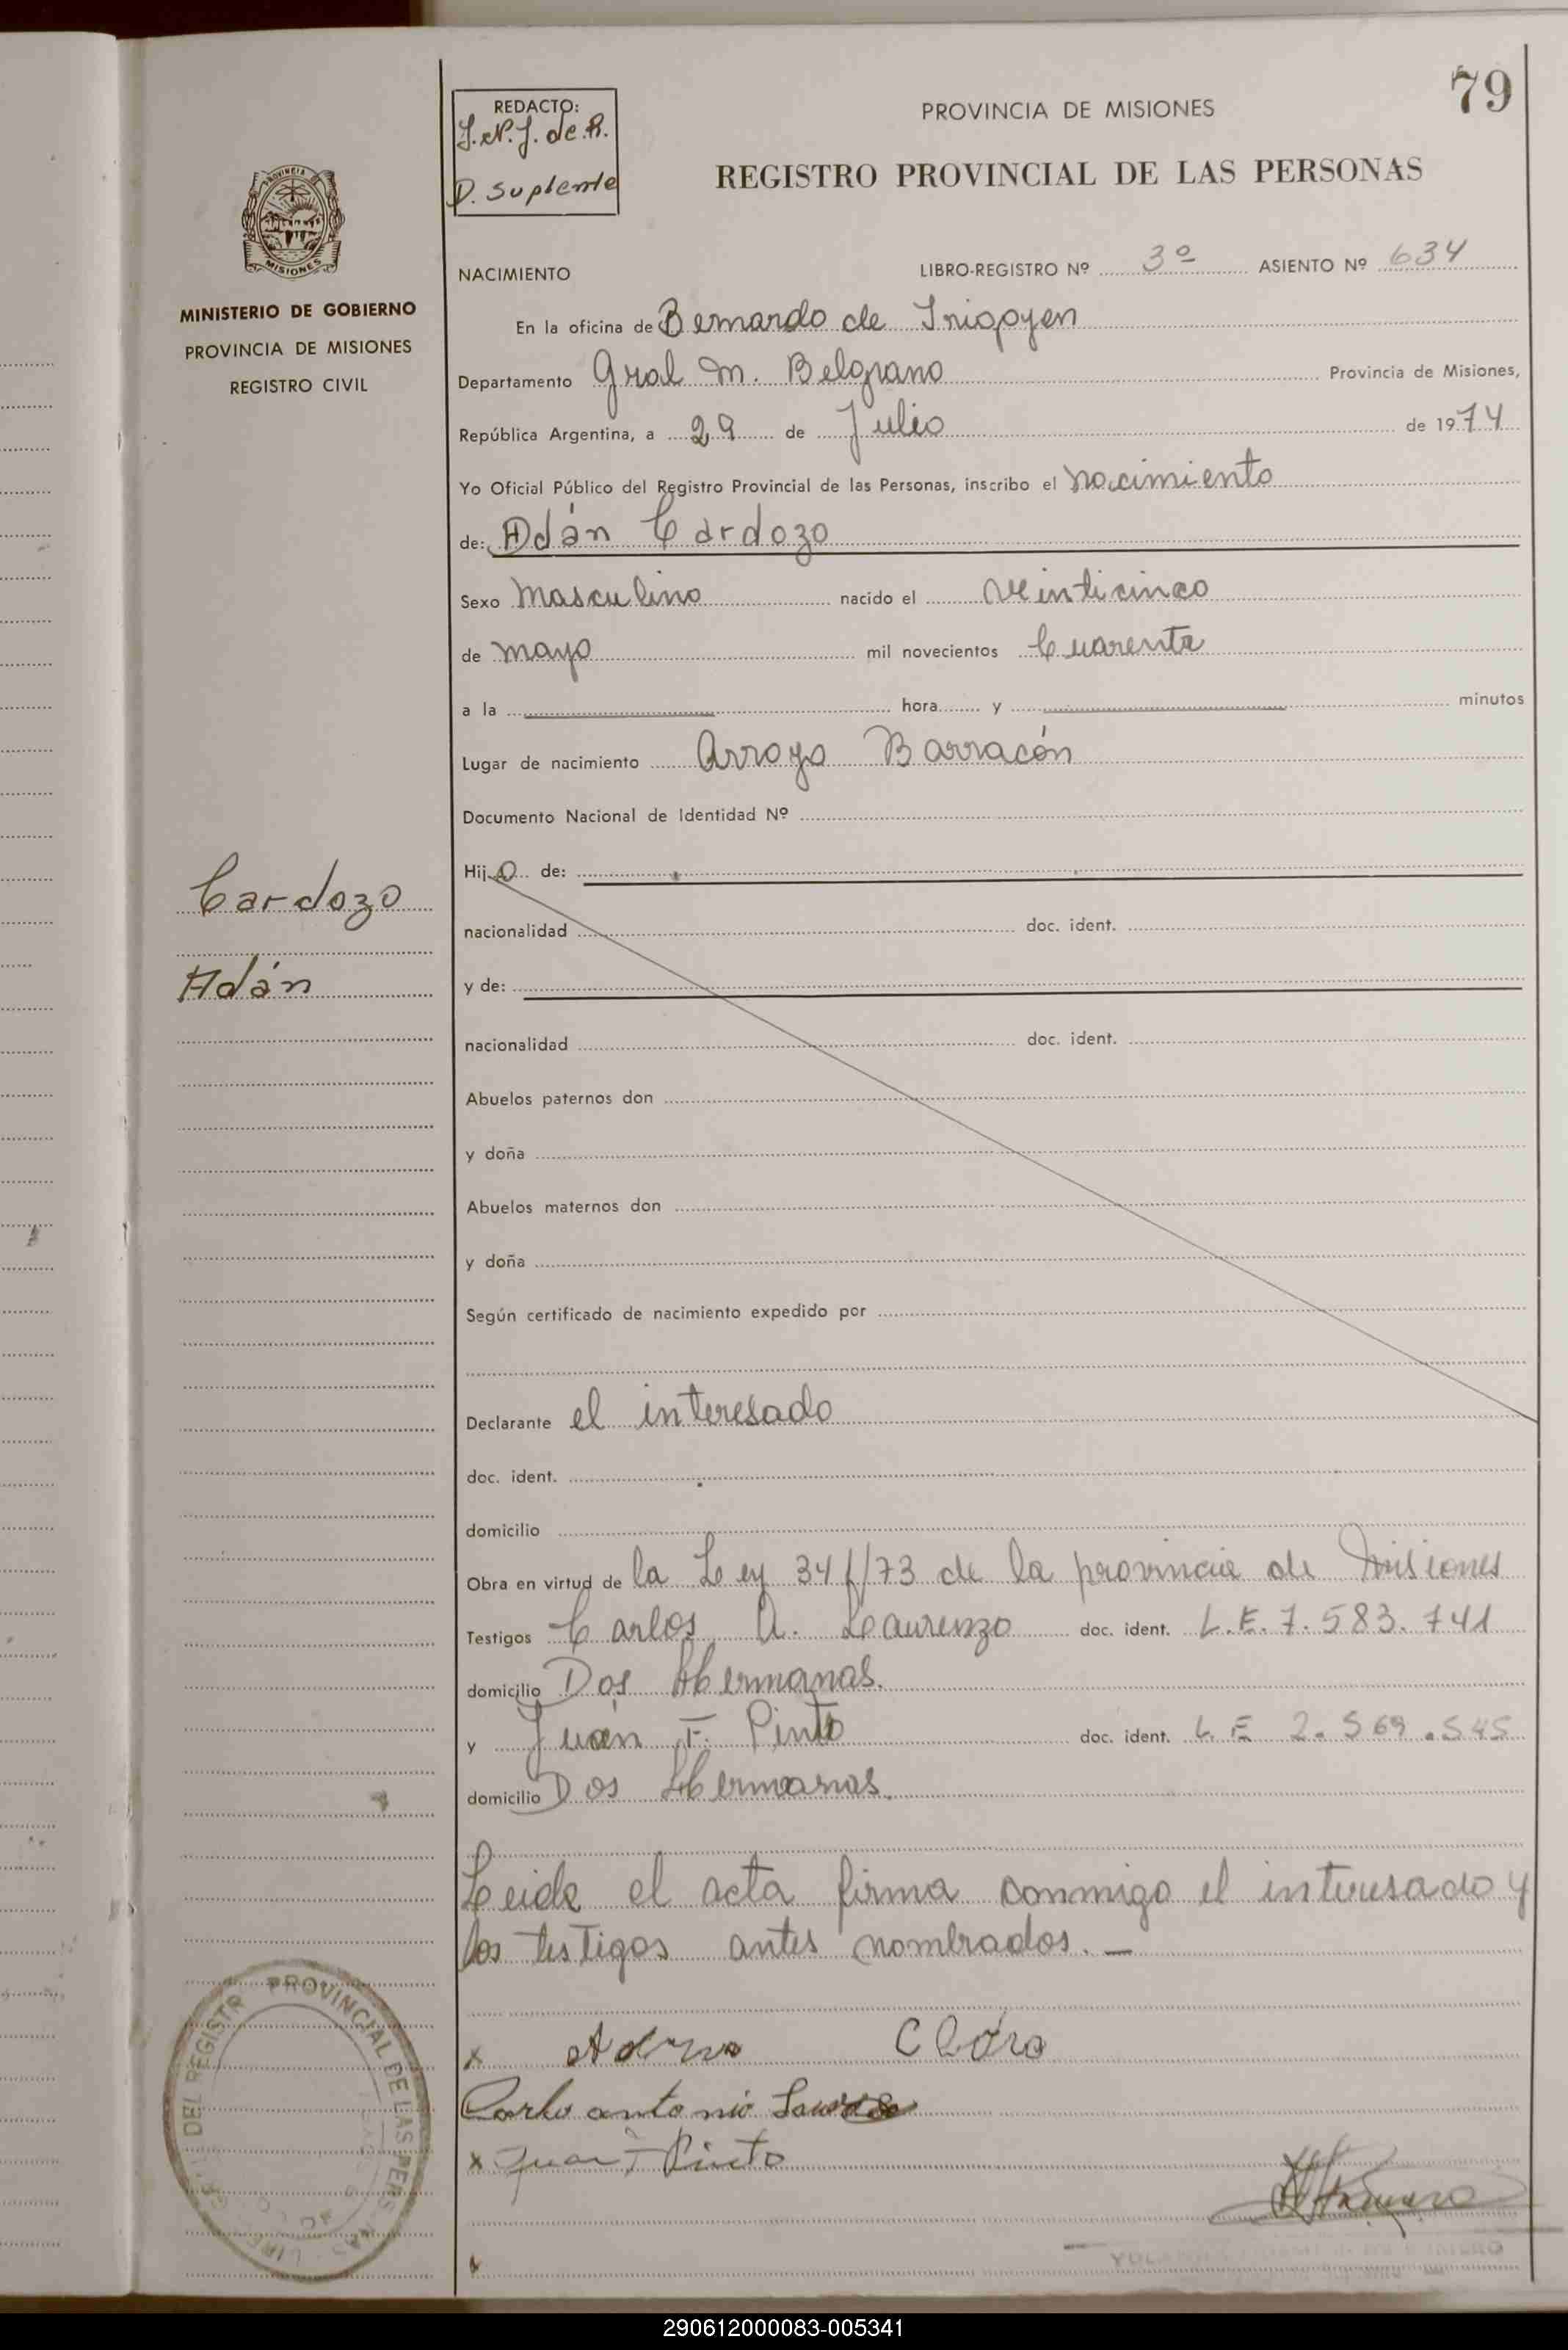 79
REDACTO:
D. Suplente
PROVINCIA DE MISIONES
REGISTRO PROVINCIAL DE LAS PERSONAS
PROVINCIA
MISIONES
MINISTERIO DE GOBIERNO
PROVINCIA DE MISIONES
REGISTRO CIVIL
NACIMIENTO LIBRO-REGISTRO Nº 3º ASIENTO Nº 634
En la oficina de Bernardo de Irigoyen
Departamento Gral M. Belgrano Provincia de Misiones,
República Argentina, a 29 de Julio de 1974
Yo Oficial Público del Registro Provincial de las Personas, inscribo el nacimiento
de: Adán Cardozo
Sexo Masculino nacido el veinticinco
de mayo mil novecientos Cuarenta
a la hora y minutos
Lugar de nacimiento Arroyo Barracón
Documento Nacional de Identidad Nº
Hijo de:
Cardozo
nacionalidad doc. ident.
Adán
y de:
nacionalidad doc. ident.
Abuelos paternos don
y doña
Abuelos maternos don
y doña
Según certificado de nacimiento expedido por
Declarante el interesado
doc. ident.
domicilio
Obra en virtud de la Ley de la provincia de Misiones
Testigos Carlos A. Laurenzo doc. ident. L.E. 7.583.741
domicilio Dos Hermanas.
y Juán F. Pinto doc. ident. L.E 2.569.545
domicilio Dos Hermanas.
Leida el acta firma conmigo el interesado y
los testigos antes nombrados. —
x
Carlo antonio
x Juan F Pinto
PROVINCIAL DE LAS PERS
DEL REGISTR
290612000083-005341